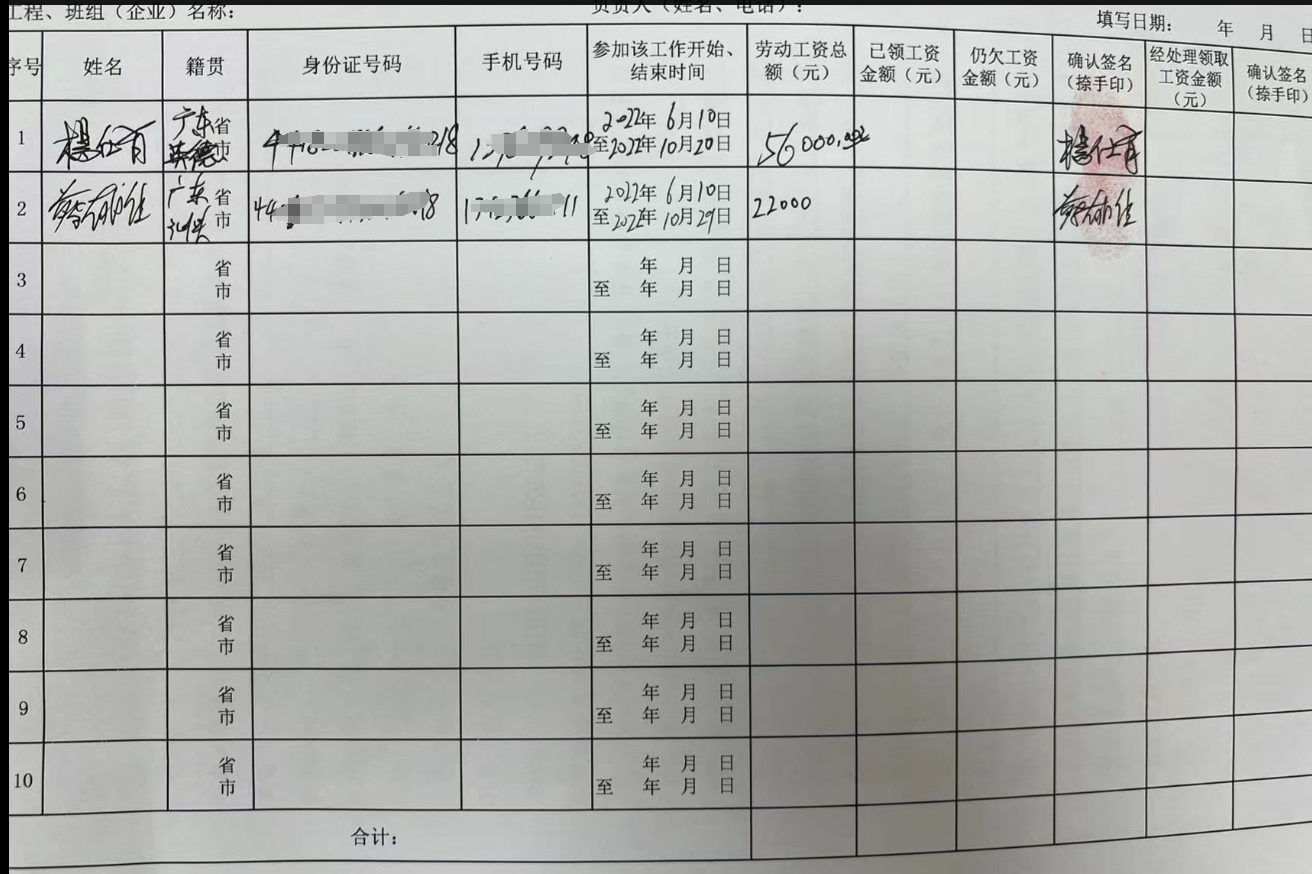 工程、班组（企业）名称：
负责人（姓名、电话）：
填写日期： 年 月 日
序号 姓名 籍贯 身份证号码 手机号码 参加该工作开始、结束时间 劳动工资总额（元） 已领工资金额（元） 仍欠工资金额（元） 确认签名（捺手印） 经处理领取工资金额（元） 确认签名（捺手印）
1 杨仕育 广东省 英德市 2022年6月10日 至2022年10月20日 56000.00 杨仕育
2 广东省 汕头市 2022年6月10日 至2022年10月29日 22000
3 省 市 年 月 日 至 年 月 日
4 省 市 年 月 日 至 年 月 日
5 省 市 年 月 日 至 年 月 日
6 省 市 年 月 日 至 年 月 日
7 省 市 年 月 日 至 年 月 日
8 省 市 年 月 日 至 年 月 日
9 省 市 年 月 日 至 年 月 日
10 省 市 年 月 日 至 年 月 日
合计：